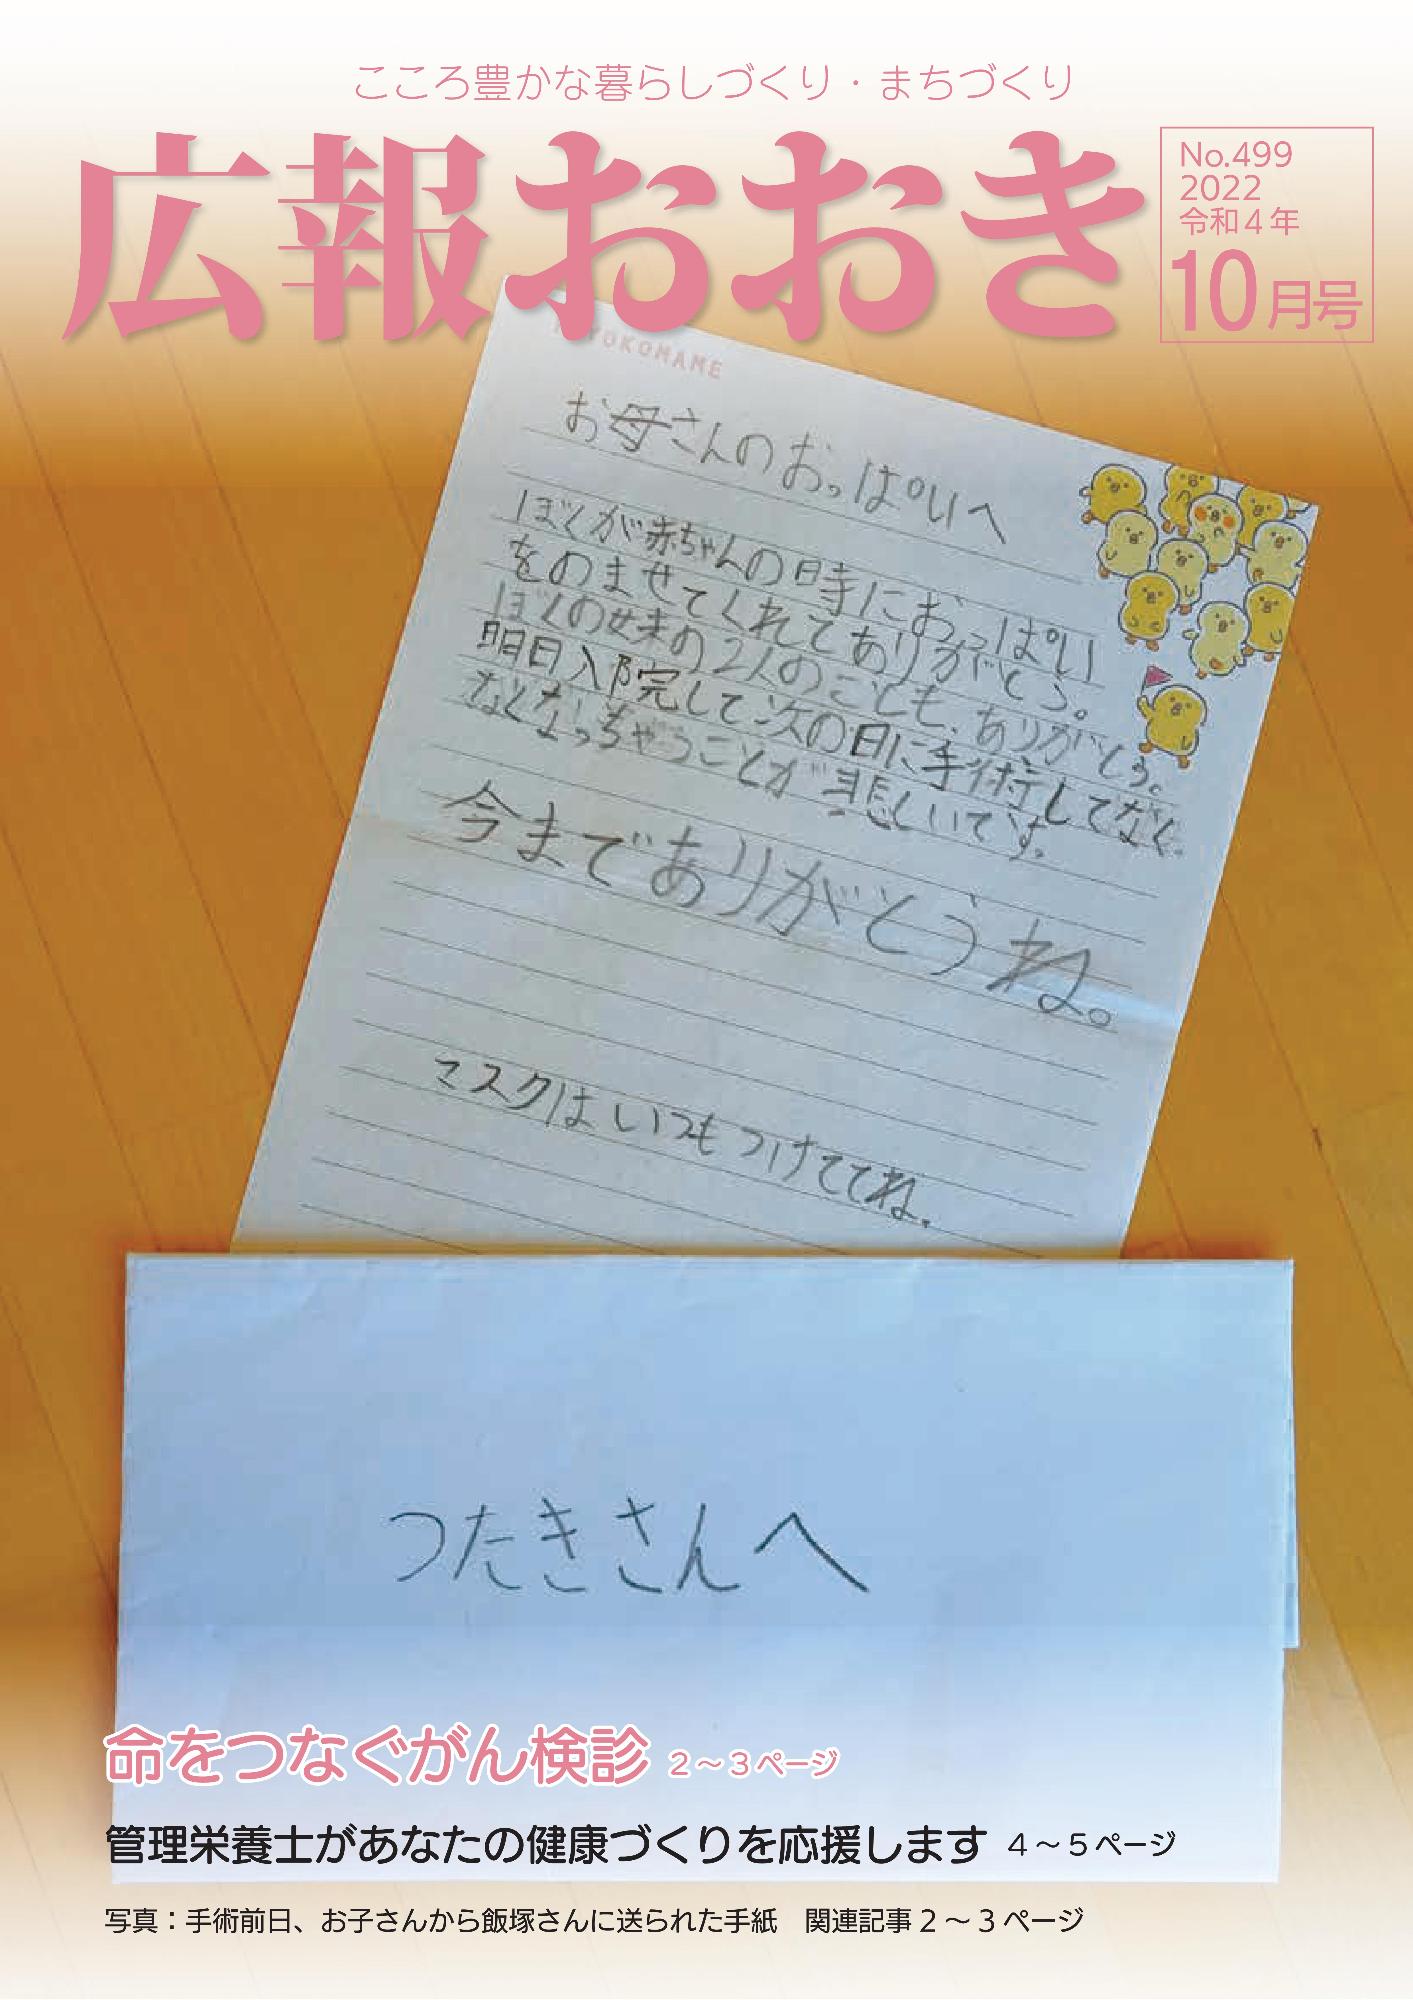 こころ豊かな暮らしづくり・まちづくり
広報おおき
No.499
2022
令和4年
10月号
YOKOMAME
お母さんのおっぱいへ
ぼくが赤ちゃんの時におっぱい
をのませてくれてありがとう。
ぼくの妹の2人のことも、ありがとう。
明日入院して次の日に手術してなく
なくなっちゃうことが悲しいです。
今までありがとうね。
マスクはいつもつけててね。
つたきさんへ
命をつなぐがん検診 2～3ページ
管理栄養士があなたの健康づくりを応援します 4～5ページ
写真：手術前日、お子さんから飯塚さんに送られた手紙　関連記事2～3ページ